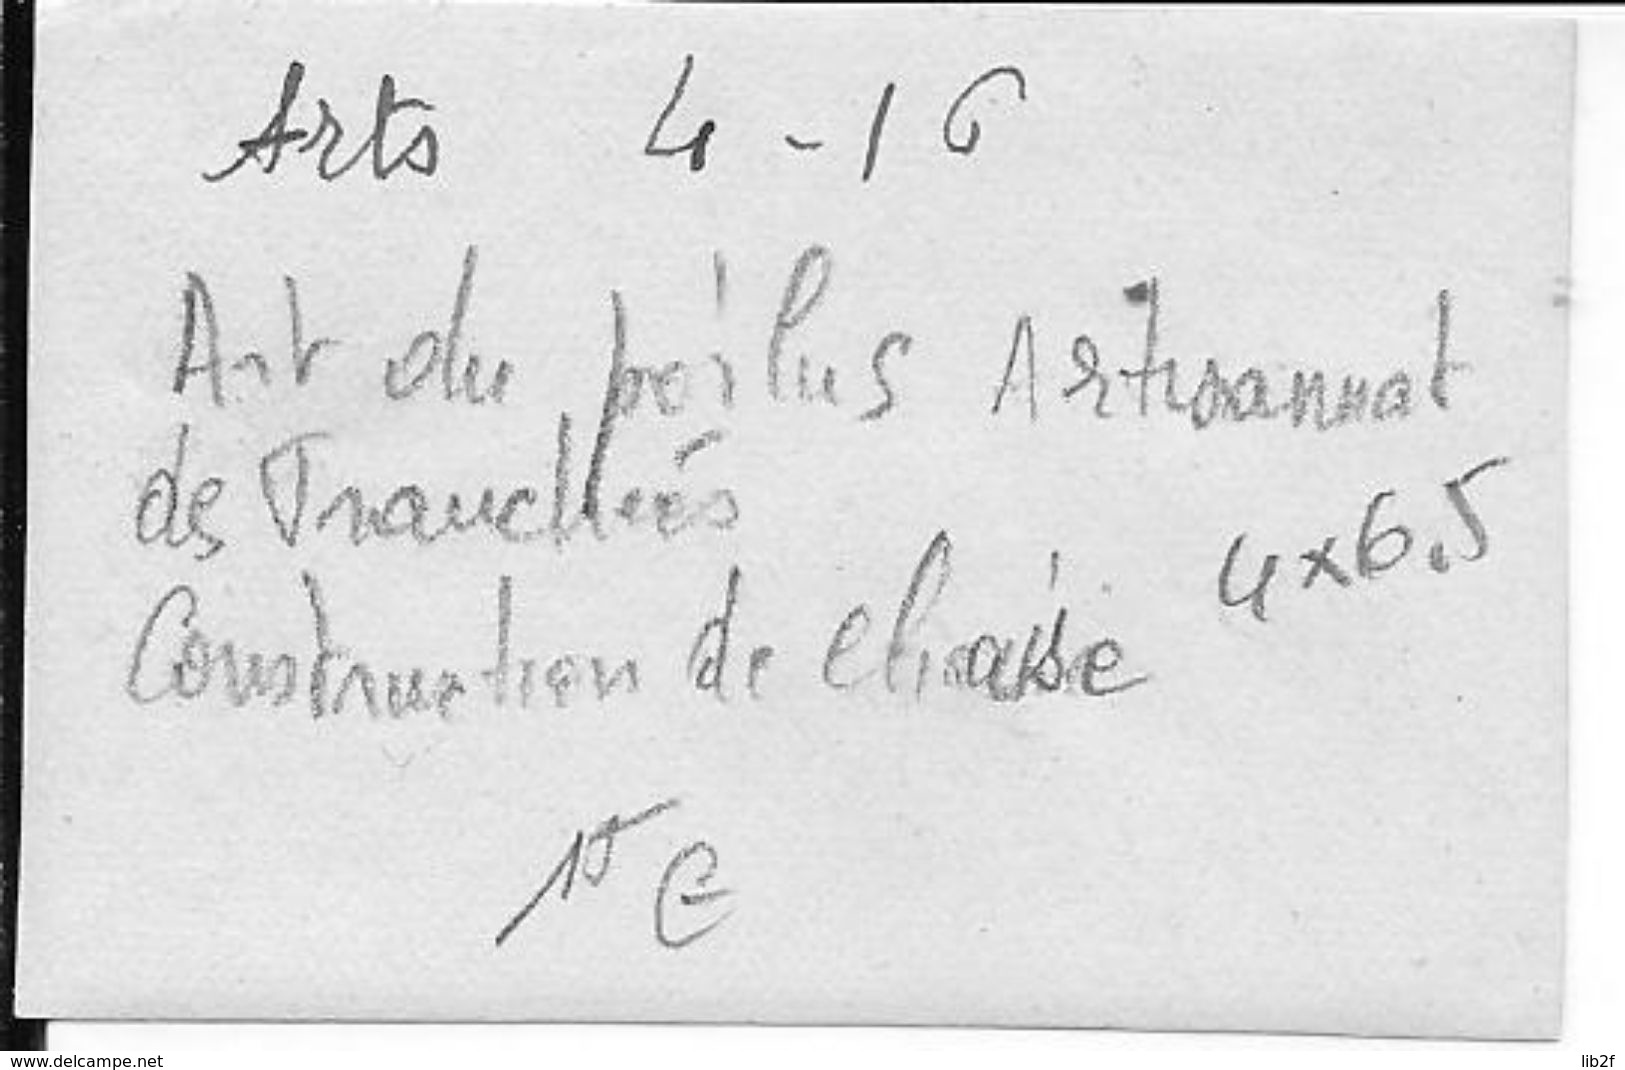 Arts 4-16
Art du poilus Artisannat
des Tranchées
4x6.5
Construction de chaise
15 €
www.delcampe.net
lib2f